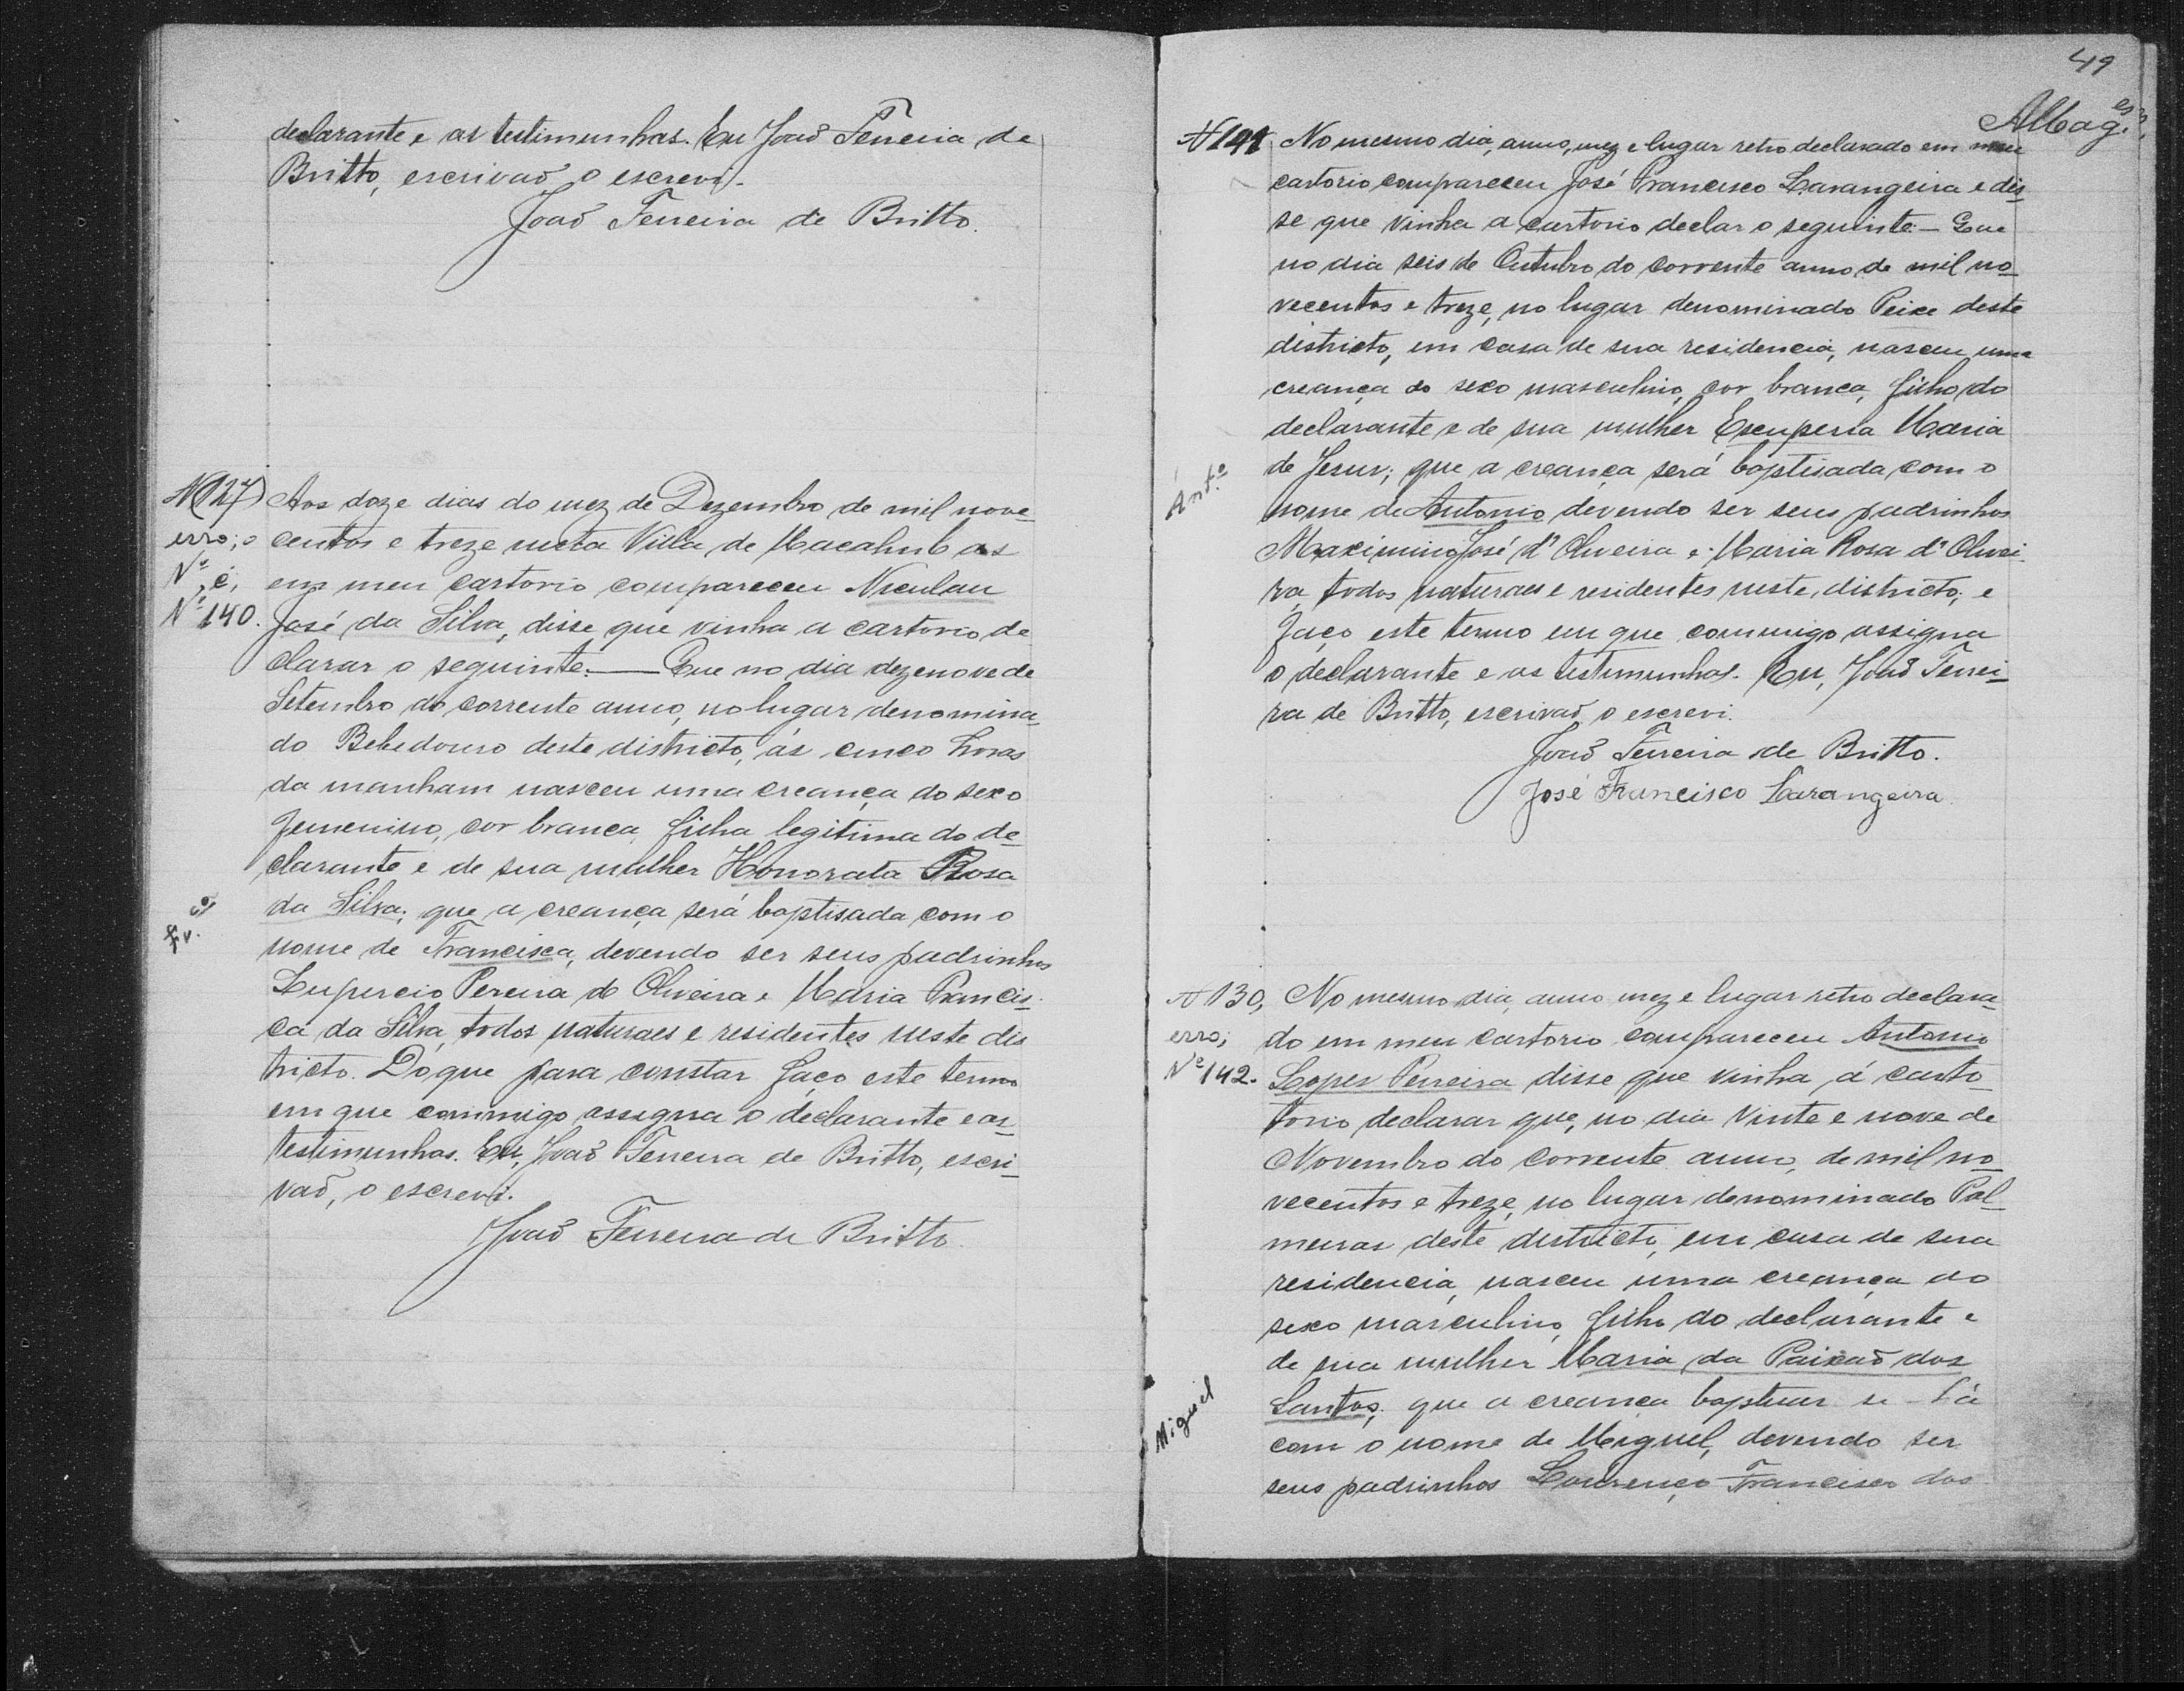 declarante e as testimunhas. Eu João Ferreira de
Britto, escrivaõ o escrevi.
João Ferreira de Britto.
N 127
erro; o
Nº é,
Nº 140.
Aos doze dias do mez de Dezembro de mil nove-
centos e treze nesta Villa de Macahubas
em meu cartorio compareceu Niculau
José da Silva, disse que vinha a cartorio de
clarar o seguinte: — Que no dia dezenove de
Setembro do corrente anno, no lugar denomina-
do Bebedouro deste districto, ás cinco horas
da manham nasceu uma creança do sexo
femenino, cor branca, filha legitima do de-
clarante e de sua mulher Honorata Rosa
da Silva; que a creança será baptisada com o
Fr.cª
nome de Francisca, devendo ser seus padrinhos
Lupercio Pereira de Oliveira e Maria Francis-
ca da Silva, todos naturaes e residentes neste dis
tricto. Do que para constar faço este termo
em que commigo assigna o declarante e as
testimunhas. Eu, João Ferreira de Britto, escri-
vaõ, o escrevi.
João Ferreira de Britto
49
N 141
No mesmo dia, anno, mez e lugar retro declarado em meu
cartorio compareceu José Francisco Larangeira e dis-
se que vinha a cartorio declar o seguinte: — Que
no dia seis de Outubro do corrente anno de mil no-
vecentos e treze, no lugar denominado Peixe deste
districto, em casa de sua residencia, nasceu uma
creança do sexo masculino, cor branca, filho do
declarante e de sua mulher Exuperia Maria
de Jesus; que a creança será baptisada com o
Antº
nome de Antonio devendo ser seus padrinhos
Maximino José d'Oliveira e Maria Rosa d'Olivei-
ra, todos naturaes e residentes neste districto; e
faço este termo em que commigo assigna
o declarante e as testimunhas. Eu, João Ferrei-
ra de Britto, escrivaõ o escrevi.
João Ferreira de Britto.
José Francisco Larangeira
N 130,
erro;
Nº 142.
No mesmo dia, anno mez e lugar retro declara-
do em meu cartorio compareceu Antonio
Lopes Ferreira disse que vinha á carto-
torio declarar que, no dia vinte e nove de
Novembro do corrente anno, de mil no-
vecentos e treze, no lugar denominado Pal-
meiras deste districto, em casa de sua
residencia, nasceu uma creança do
sexo masculino, filho do declarante e
de sua mulher Maria da Paixaõ dos
Santos; que a creança baptisar se-há
Miguel
com o nome de Miguel, devendo ser
seus padrinhos Lourenço Francisco dos